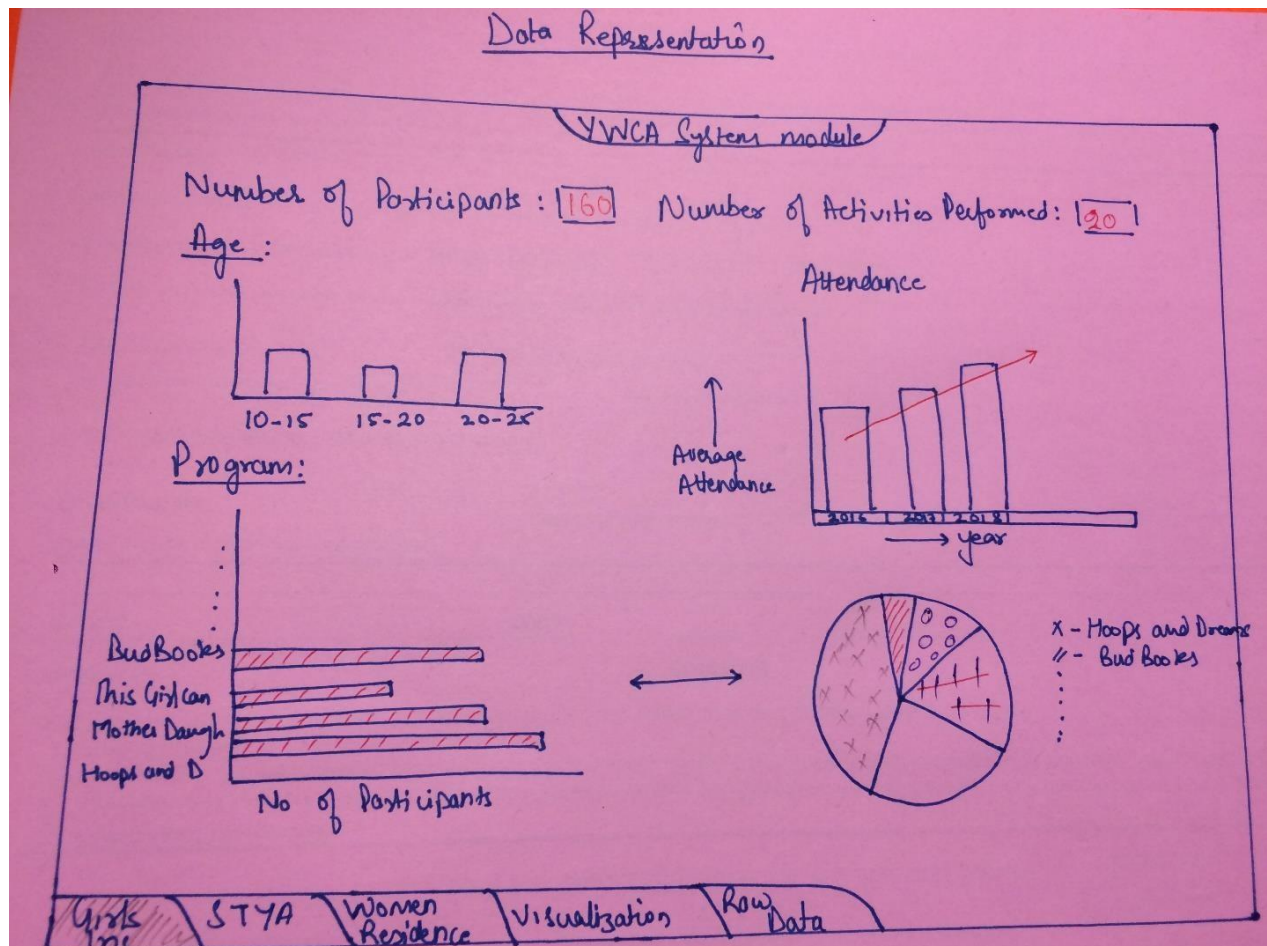 Data Representation
YWCA System module
Number of Participants : 160 Number of Activities Performed: 20
Age :
10-15 15-20 20-25
Attendance
Average
Attendance
2016 2017 2018
→ year
Program:
BudBooks
This Girl can
Mother Daugh
Hoops and D
No of Participants
x - Hoops and Dreams
// - Bud Books
Girls
Inc
STYA
Women
Residence
Visualization
Raw
Data